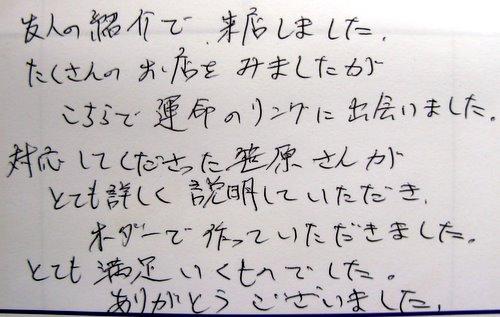 友人の紹介で、来店しました。
たくさんの お店を みましたが
こちらで 運命のリングに 出会いました。
対応してくださった 笹原 さんが
とても詳しく 説明していただき、
オーダーで 作っていただきました。
とても 満足 いくものでした。
ありがとう ございました。